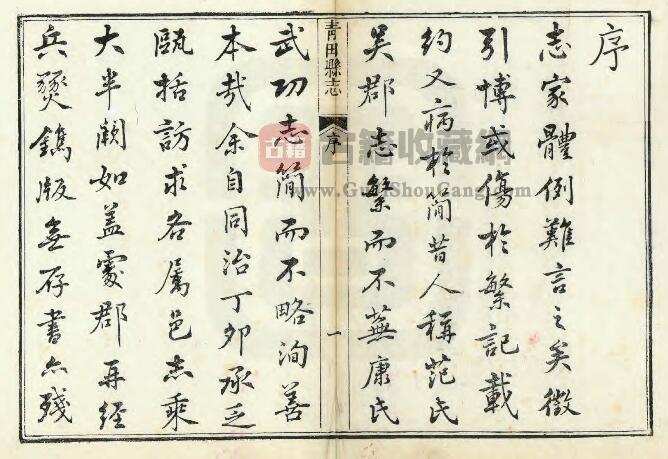 序
志家體例難言之矣徵
引博或傷於繁記載
約又病於簡昔人稱范氏
吳郡志繁而不蕪康氏
青田縣志
序
一
武功志簡而不略洵善
本哉余自同治丁卯承乏
甌括訪求各屬邑志乘
大半闕如蓋處郡再經
兵燹鐫版無存書亦殘
古籍收藏網
www.GuJiShouCang.com